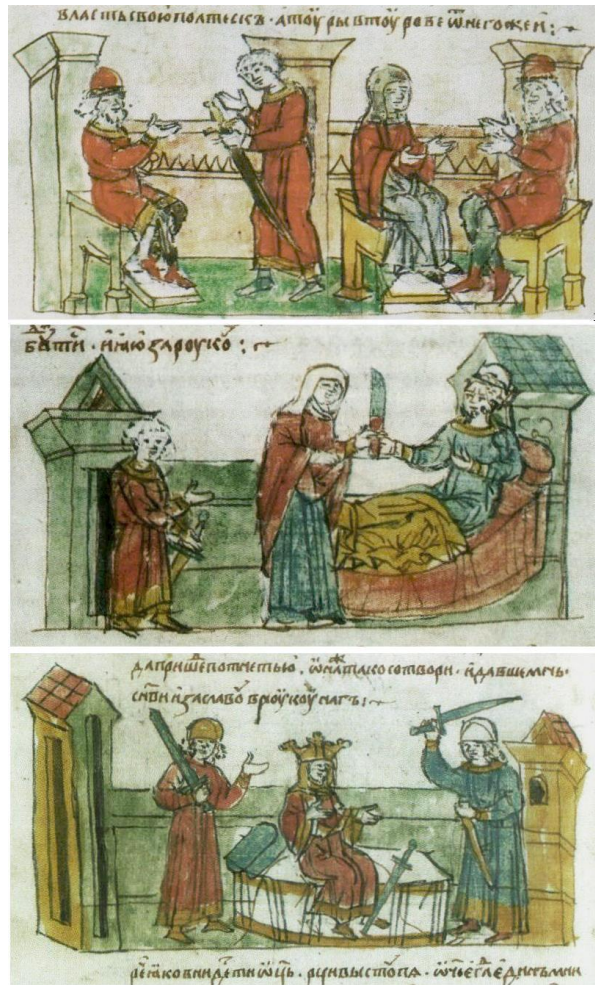 власть свою полтескъ · а тоуры в тоурове ѿ негоже и :~
за роукоу :~
да пришеⷣ потнеть ю · ѡна же тако сотвори · и давше мечь ·
сн҃ви изѧславоу в роукоу нагъ :~
реⷱ ꙗко внидеть ти ѿць · рци выстоупѧ · ѡч҃е еда единъ мни